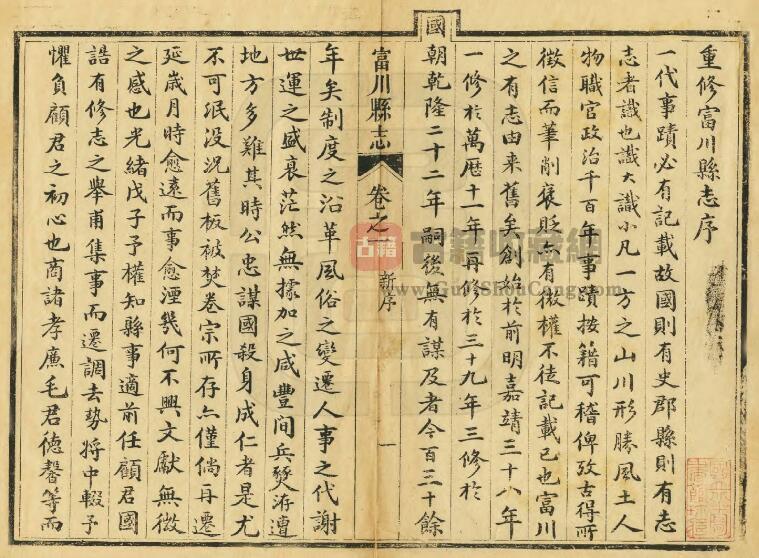 重修富川縣志序
一代事蹟必有記載故國則有史郡縣則有志
志者識也識大識小凡一方之山川形勝風土人
物職官政治千百年事蹟按籍可稽俾攷古得所
徵信而筆削褒貶亦有微權不徒記載已也富川
之有志由來舊矣創始於前明嘉靖三十八年
一修於萬曆十一年再修於三十九年三修於
國
朝乾隆二十二年嗣後無有謀及者今百三十餘
富川縣志
卷之一
新序
一
年矣制度之沿革風俗之變遷人事之代謝
世運之盛衰茫然無據加之咸豐間兵燹洊遭
地方多難其時公忠謀國殺身成仁者是尤
不可泯没況舊板被焚卷宗所存亦僅倘再遷
延歲月時愈遠而事愈湮幾何不興文獻無徵
之感也光緒戊子予權知縣事適前任顧君國
誥有修志之舉甫集事而遷調去勢將中輟予
懼負顧君之初心也商諸孝廉毛君德馨等而
古籍
www.GuJiShouCang.com